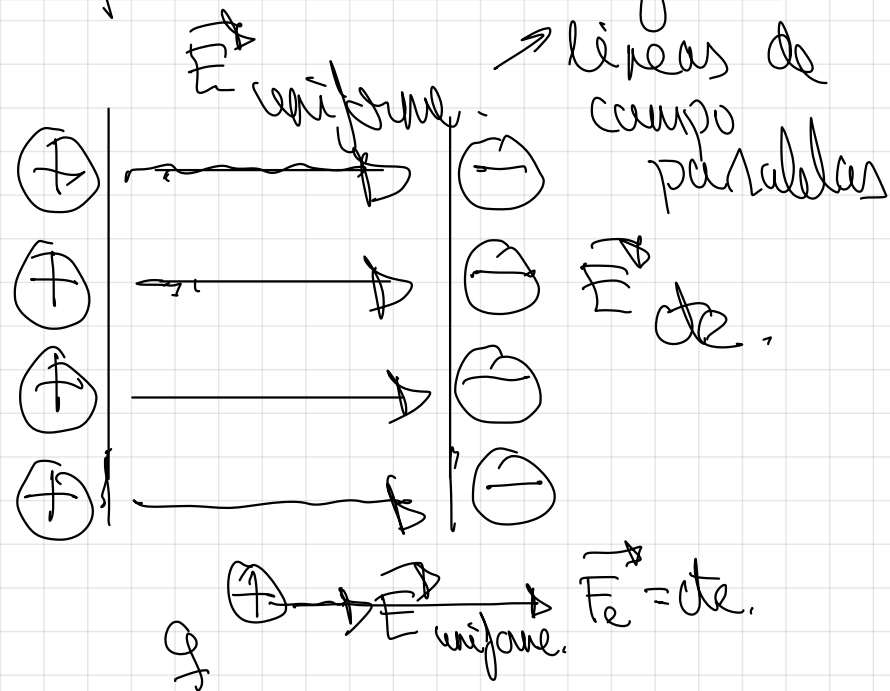 E uniforme.
→ líneas de
campo
paralelas
+ −
+ −
E cte.
+ −
+ −
+ E uniforme. Fe = cte.
q